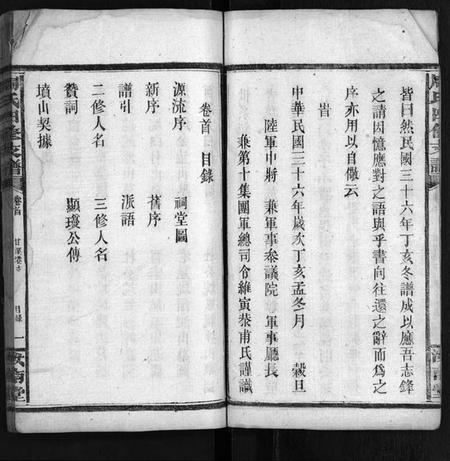 周氏四修支譜
皆曰然民國三十六年丁亥冬譜成以應吾志鋒
之請因憶應對之語與乎書向往還之辭而爲之
序亦用以自儆云
旹
中華民國三十六年歲次丁亥孟冬月 榖旦
陸軍中將 兼軍事參議院 軍事廳長
兼第十集團軍總司令維寅恭甫氏謹識
卷首 目錄
源流序 祠堂圖
新序 舊序
譜引 派語
二修人名 三修人名
贊詞 顯璦公傳
墳山契據
周氏四修支譜
卷首
目錄
一
汝南堂